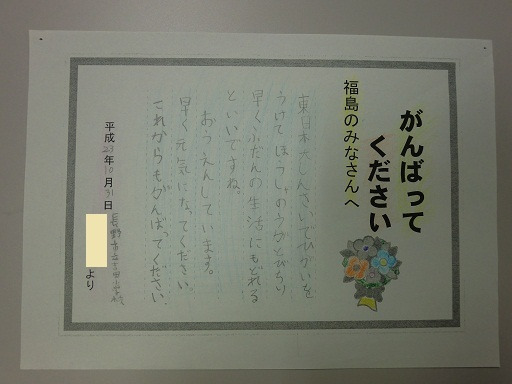 がんばって
ください
福島のみなさんへ
東日本大しんさいでひがいを
うけてほうしゃのうが
早くふだんの生活にもどれる
といいですね
おうえんしています。
早く元気になってください。
これからもがんばってください。
平成23年10月31日 長野市立吉田小学校
より